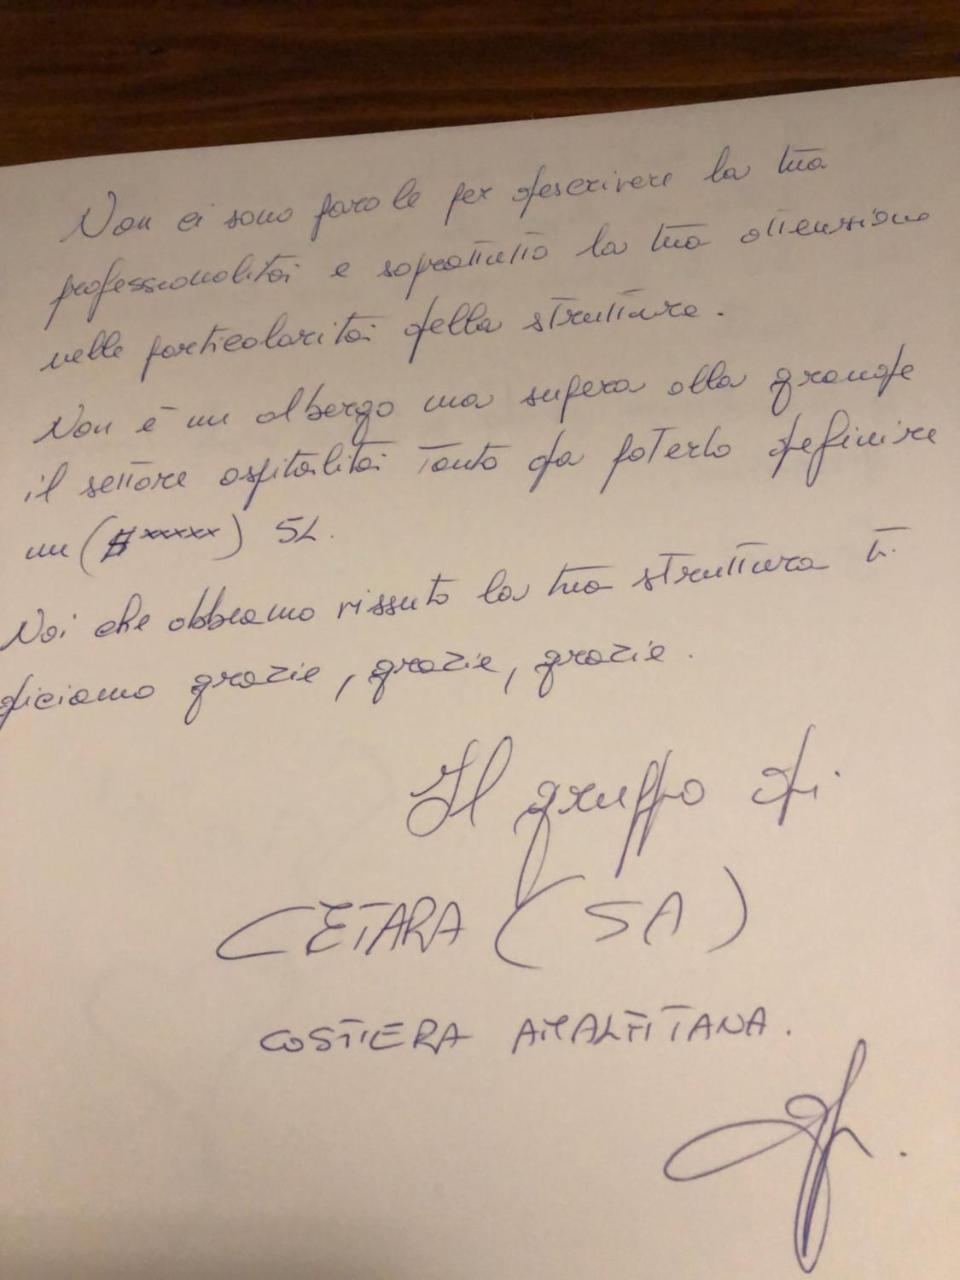 Non ci sono parole per descrivere la tua
professionalità e soprattutto la tua attenzione
nelle particolarità della struttura.
Non è un albergo ma supera alla grande
il settore ospitalità tanto da poterlo definire
un (xxxxx) 5L.
Noi che abbiamo vissuto la tua struttura ti
diciamo grazie, grazie, grazie.
Il gruppo di
CETARA (SA)
COSTIERA AMALFITANA.